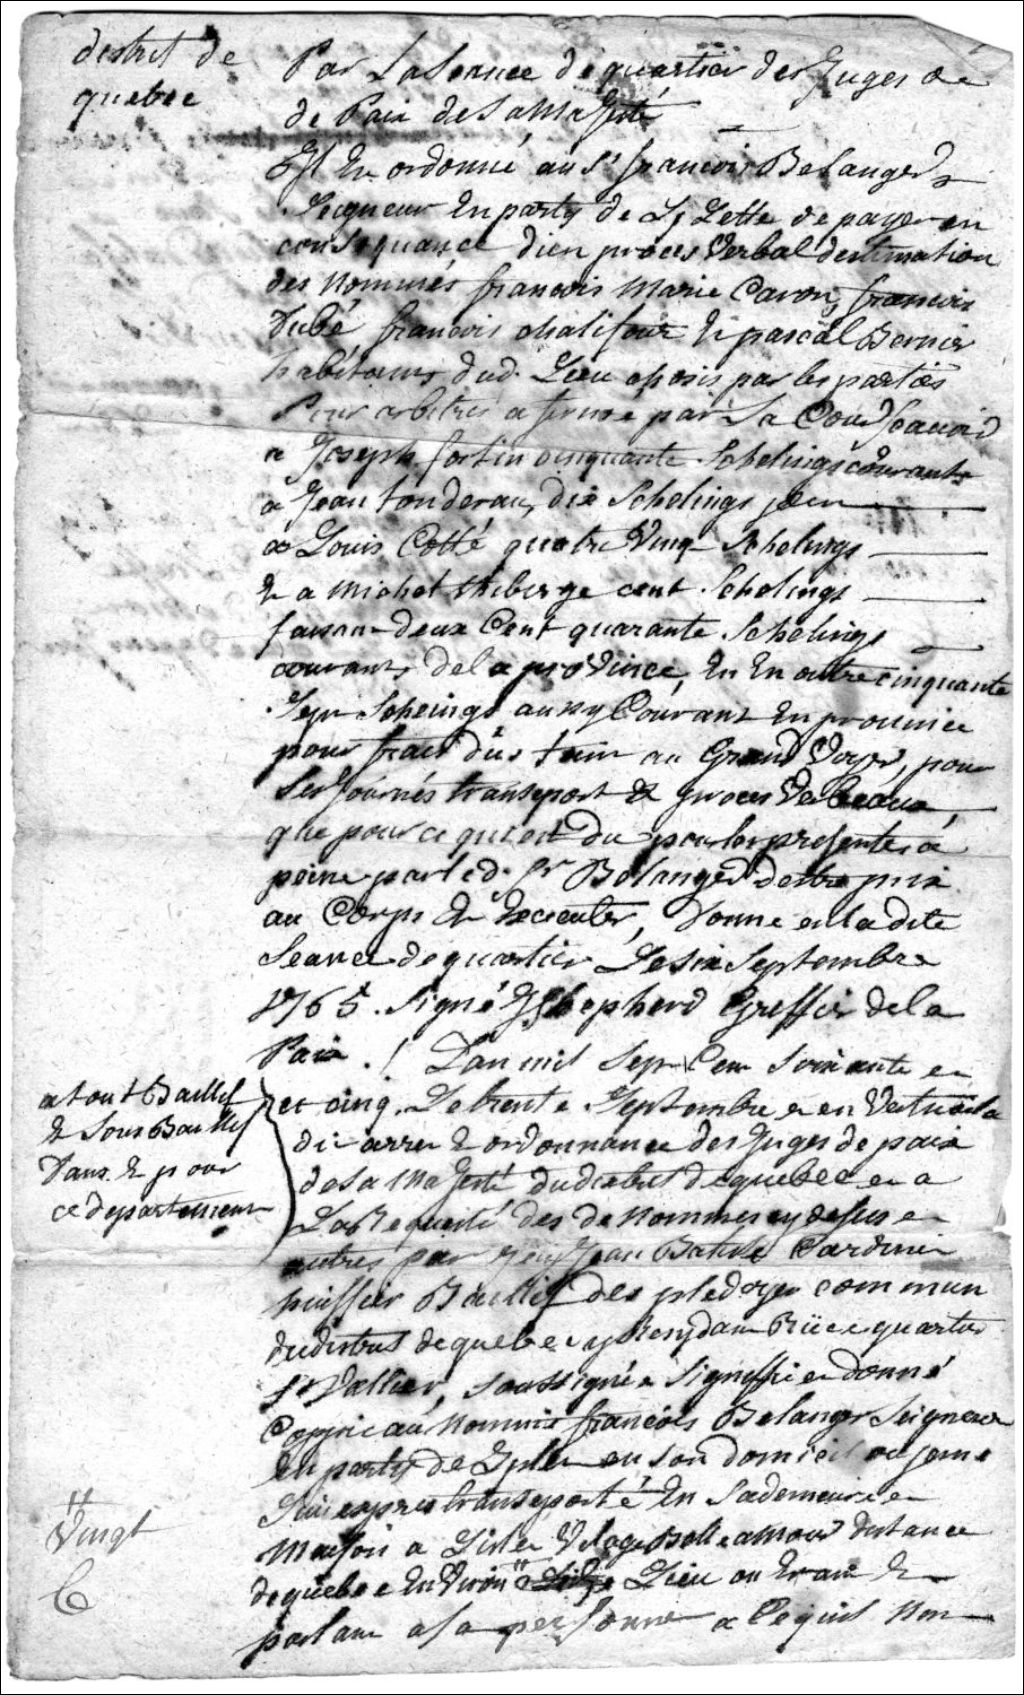 district de
quebec
Par La Seance de quartier des Juges de
de Paix de Sa Majesté
Est En ordonné au Sr francois Belanger
Seigneur En party de Lette de payer en
consequance dien proces Verbal destimation
des Nommés francois Marie Caron, francois
Dubé francois chalifour Et pascal Bernier
habitans dud. Lieu choisis par les parties
Pour arbitres a ferme par La Cour Scavoir
a Joseph fortin cinquante Schelings courants
a Jean tonderau, dix Schelings
a Louis Cotté quatre Vingt Schelings
Et a Michel Theberge cent Schelings
faisan deux Cent quarante Schelings
courants de la proVince, En En outre cinquante
Sept Schelings aussy Courant En province
pour frais dus tain au Grand Voyer, pour
Ses Journés transport & proces Verbeaux,
que pour ce qui est Du pour les presentes a
peine par led. Sr Belanger destre pris
au Corps Et Execcuter, Donne en la dite
Seance de quartier Le six Septembre
1765. Signé Shepherd Greffier de la
Paix . / Lan mil Sept Cen Soixante en
et cinq. Le trente Septembre en en Vertu de la
di arres Et ordonnance des Juges de paix
de Sa Majesté du district de quebec en a
La Requeité des de Nommes cy desus en
autres par Jean Batiste Cardinin
huissier Baillif des pledoyer commun
du distrus de quebec y Resydan Rüe quartier
St Vallier, soussignée Signiffié en donné
Coppie au Nommé francois Belanger Seigneur
En party de en son domicil ou je me
Suis expres transporté En Sa demeure en
Maison a Lislet distance
de quebec En Viron Lieu ou Etant Et
parlan a Sa personne a Ce quil Non
a tout Baillif
Et Sous Baillif
Dans Et pour
ce departement
Vingt